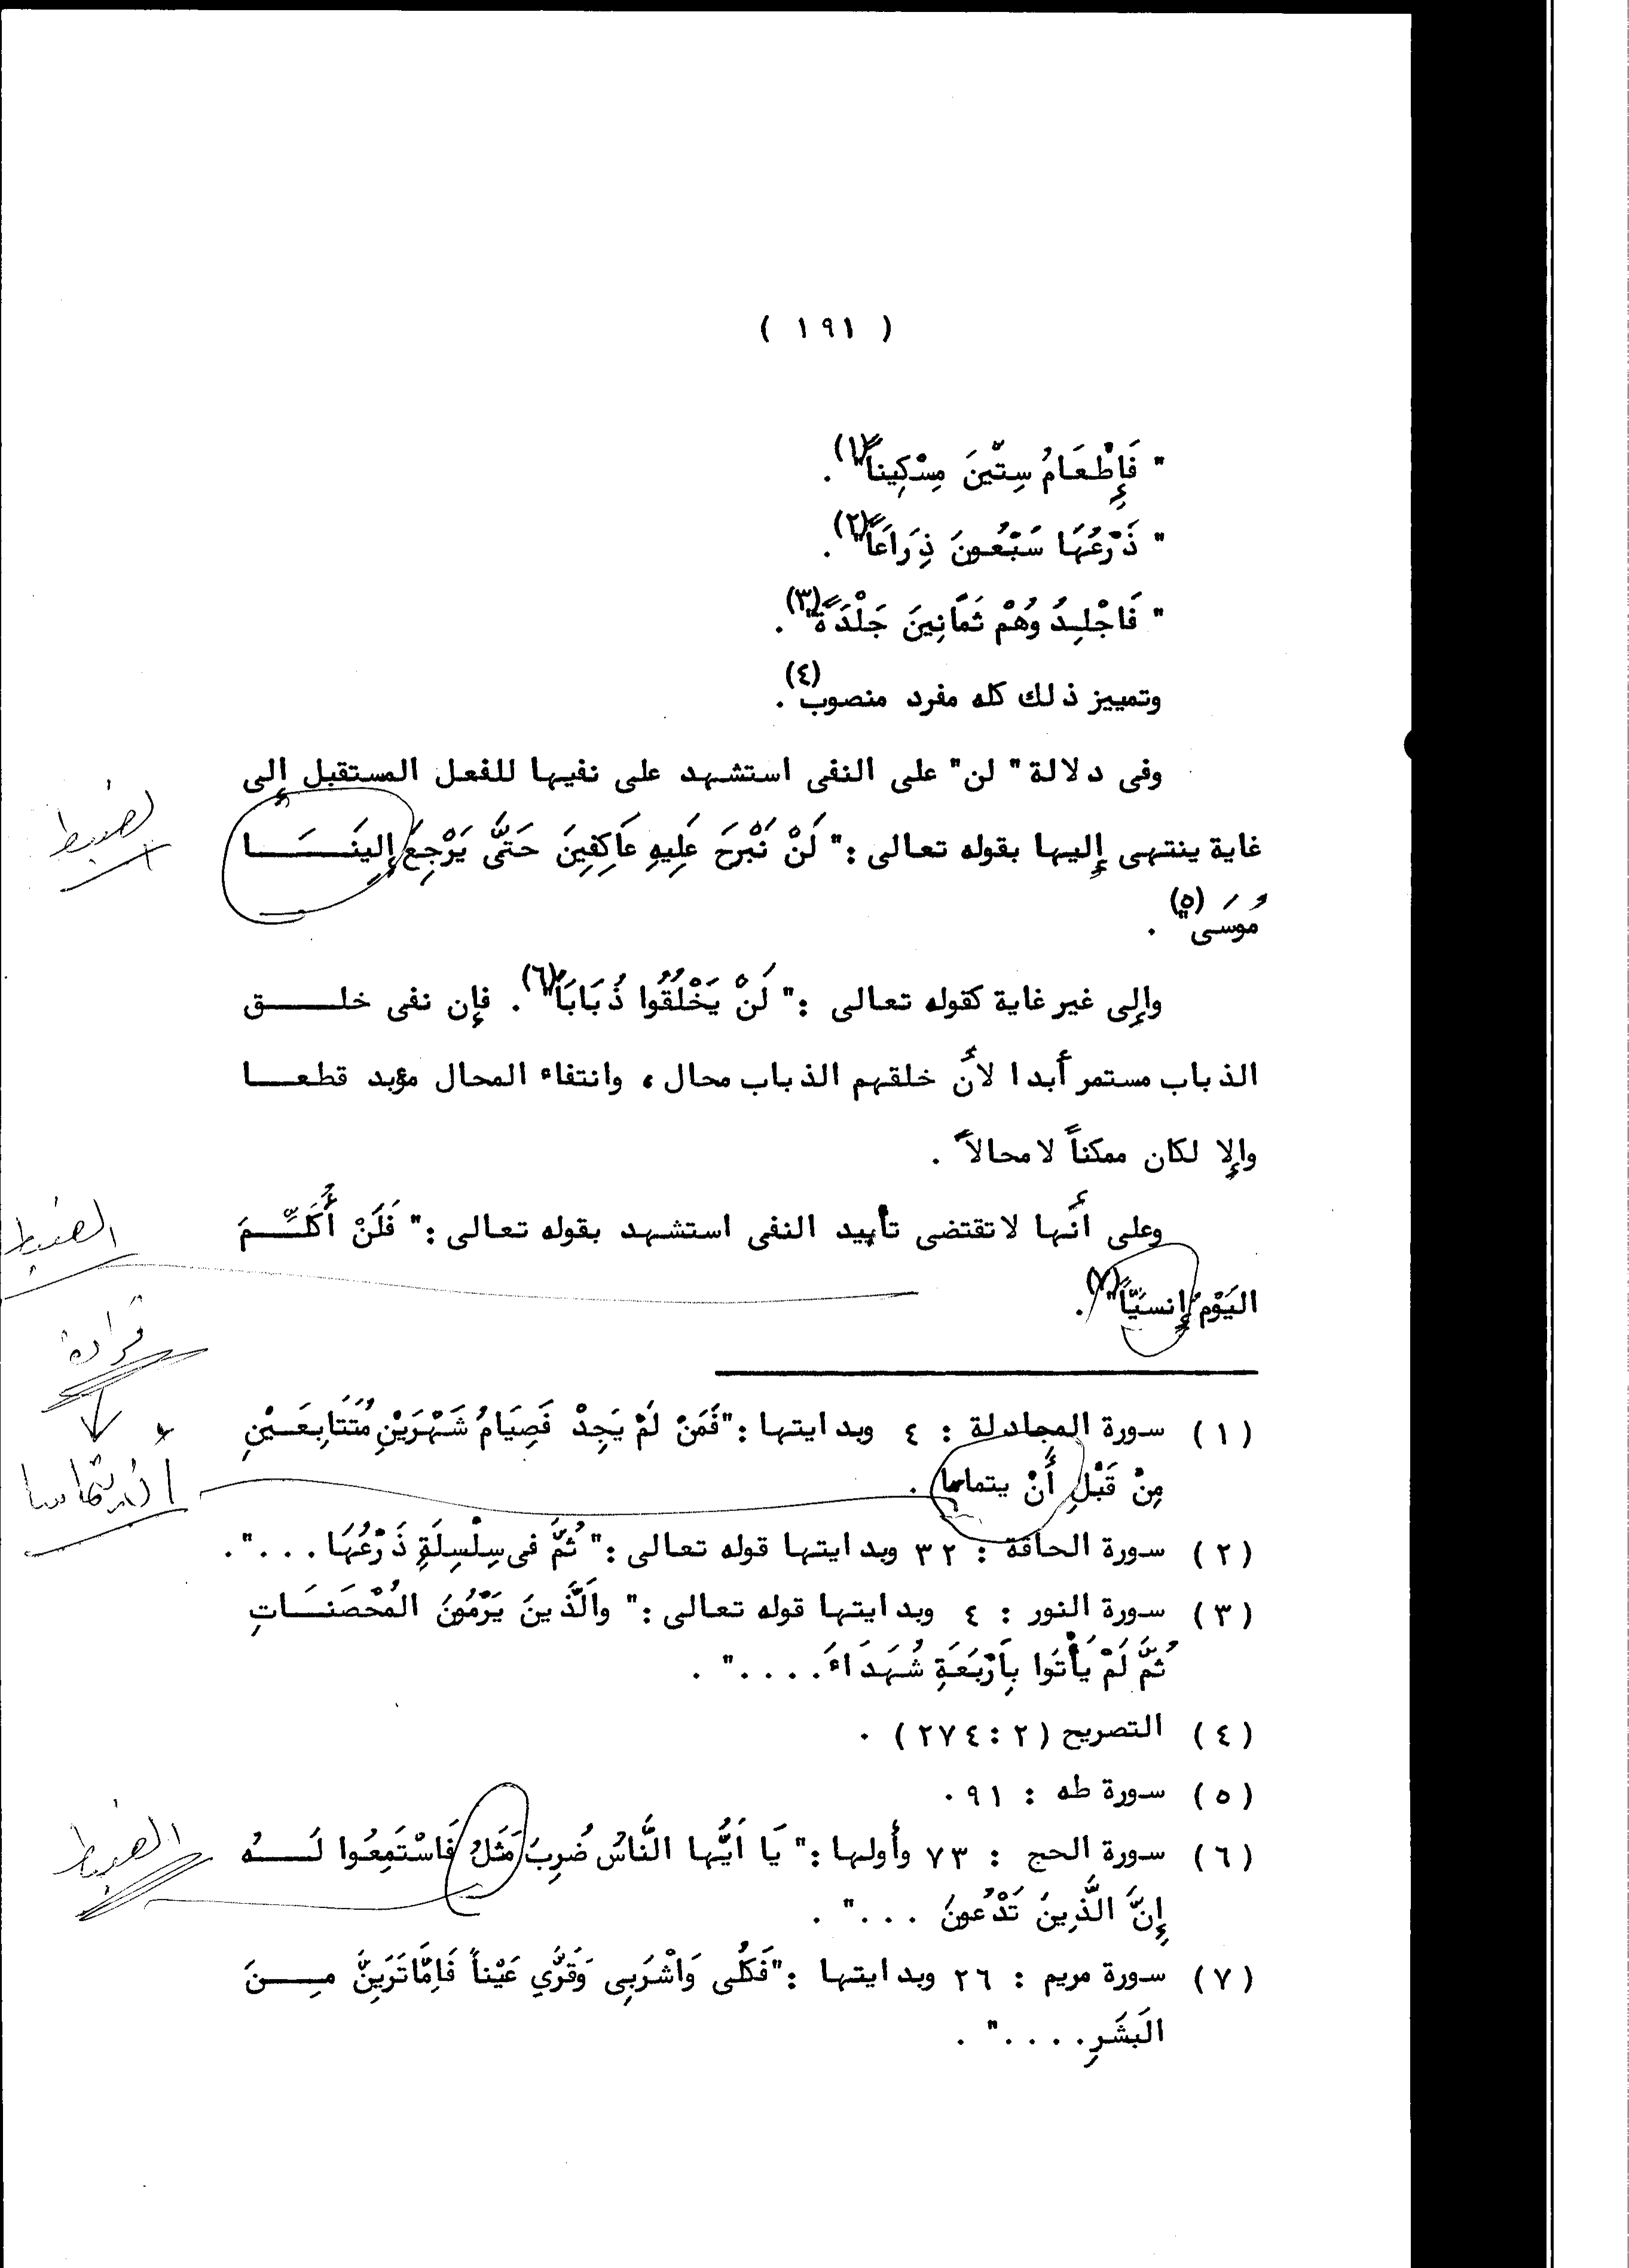 ( ١٩١ )
" فَإِطْعَامُ سِتّينَ مِسْكِيناً"(١) .
" ذَرْعُهَا سَبْعُونَ ذِرَاعَاً"(٢) .
" فَاجْلِدُ وهُمْ ثَمَانِينَ جَلْدَةً"(٣) .
وتمييز ذلك كله مفرد منصوب(٤) .
وفى دلالة " لن" على النفى استشهد على نفيها للفعل المستقبل إلى
لضبط
غاية ينتهى إليها بقوله تعالى :" لَنْ نَبْرَحَ عَلِيهِ عَاكِفِينَ حَتَّى يَرْجِعَ إِلينَـــا
مُوسَى"(٥) .
وإلى غير غاية كقوله تعالى :" لَنْ يَخْلُقُوا ذُبَابَاً"(٦) . فإن نفى خلـــق
الذباب مستمر أبدا لأنّ خلقهم الذباب محال ، وانتفاء المحال مؤبد قطعـــا
وإلا لكان ممكناً لا محالاً .
وعلى أنها لا تقتضى تأبيد النفى استشهد بقوله تعالى :" فَلَنْ أُكَلِّـــمَ
الضبط
اليَوْمُ إِنسيَّاً"(٧) .
قراءة
(١) سورة المجادلة : ٤ وبدايتها :"فَمَنْ لَمْ يَجِدْ فَصِيَامُ شَهْرَيْنِ مُتَتَابِعَـيْنِ
مِنْ قَبْلِ أَنْ يتماسا .
أن يتماسا
(٢) سورة الحاقة : ٣٢ وبدايتها قوله تعالى :" ثُمَّ فى سِلْسِلَةٍ ذَرْعُهَا . . .".
(٣) سورة النور : ٤ وبدايتها قوله تعالى :" والَّذينَ يَرْمُونَ المُحْصَنَــاتِ
ثُمَّ لَمْ يَأْتَوا بِأَرْبَعَةِ شُهَدَاءَ. . . ." .
(٤) التصريح (٢ : ٢٧٤) .
(٥) سورة طه : ٩١ .
(٦) سورة الحج : ٧٣ وأولها :" يَا اَيُّها النَّاسُ ضُرِبَ مَثَلُ فَاسْتَمِعُوا لَـــهُ
الضبط
إِنَّ الَّذِينَ تَدْعُونَ . . ." .
(٧) سورة مريم : ٢٦ وبدايتها :"فَكُلى وَاشْرَبِى وَقَرِّي عَيْناً فَاِمَّاتَرَيِنَّ مِـــنَ
البَشَرِ. . . ." .